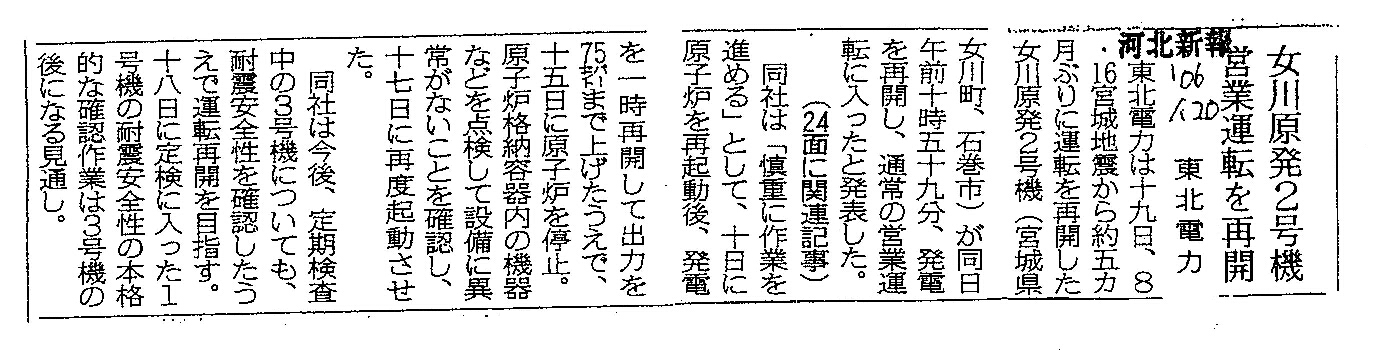 女川原発2号機
営業運転を再開
東北電力
河北新報
'06
1/20
東北電力は十九日、8
・16宮城地震から約五カ
月ぶりに運転を再開した
女川原発2号機(宮城県
女川町、石巻市)が同日
午前十時五十九分、発電
を再開し、通常の営業運
転に入ったと発表した。
(24面に関連記事)
同社は「慎重に作業を
進める」として、十日に
原子炉を再起動後、発電
を一時再開して出力を
75㌫まで上げたうえで、
十五日に原子炉を停止。
原子炉格納容器内の機器
などを点検して設備に異
常がないことを確認し、
十七日に再度起動させ
た。
同社は今後、定期検査
中の3号機についても、
耐震安全性を確認したう
えで運転再開を目指す。
十八日に定検に入った1
号機の耐震安全性の本格
的な確認作業は3号機の
後になる見通し。